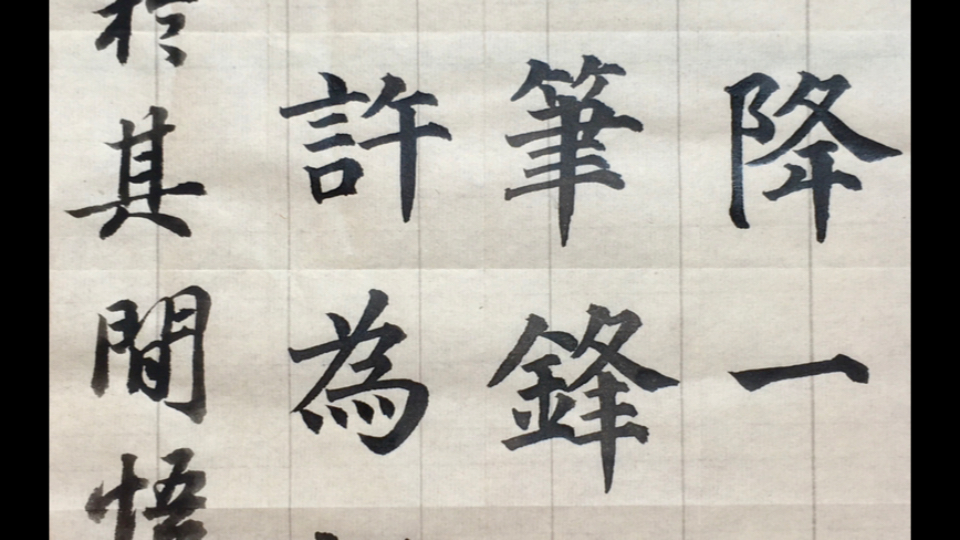 降一
筆鋒
許為
於其間悟